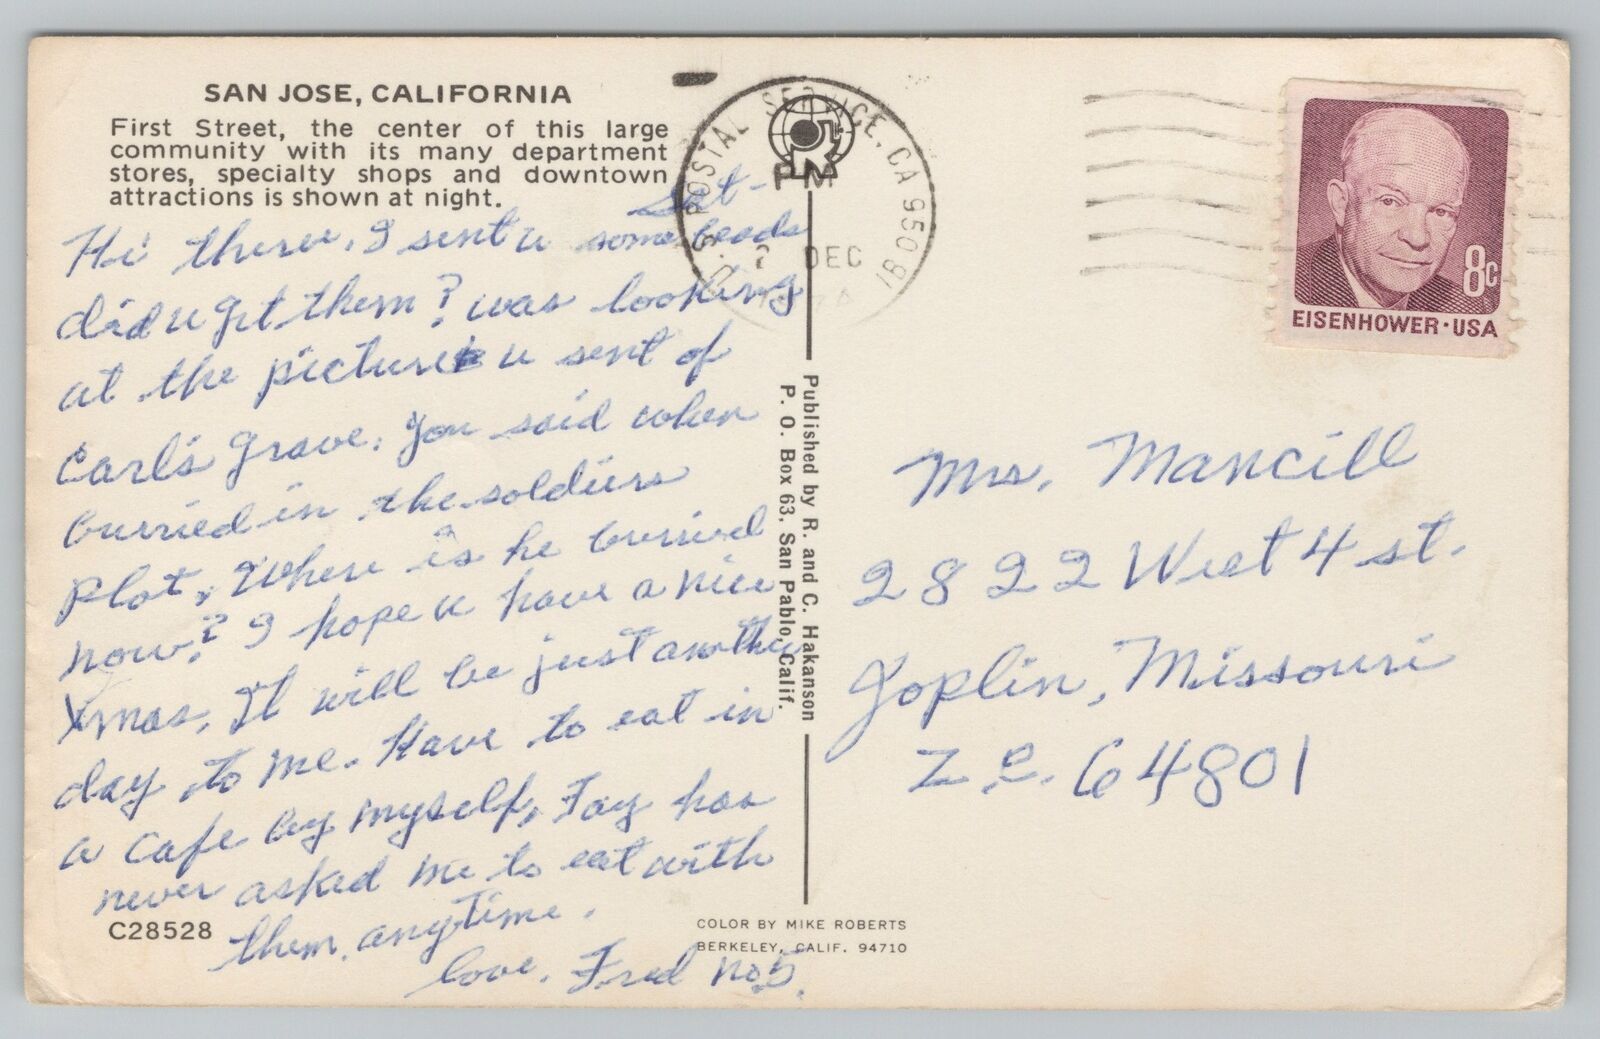 SAN JOSE, CALIFORNIA
First Street, the center of this large
community with its many department
stores, specialty shops and downtown
attractions is shown at night.
Sat-
Hi there, I sent u some beads
did u get them? was looking
at the picture u sent of
Carl's grave. You said when
burried in the soldiers
plot, Where is he burried
now? I hope u have a nice
Xmas, It will be just another
day to me. Have to eat in
a cafe by myself, Fay has
never asked me to eat with
them anytime.
love, Fred no.5.
C28528
U.S. POSTAL SERVICE, CA 950 81
PM
2 DEC
1974
Published by R. and C. Hakanson
P. O. Box 63, San Pablo, Calif.
COLOR BY MIKE ROBERTS
BERKELEY, CALIF. 94710
8c
EISENHOWER·USA
Mrs. Mancill
2822 West 4 st.
Joplin, Missouri
Z.P. 64801